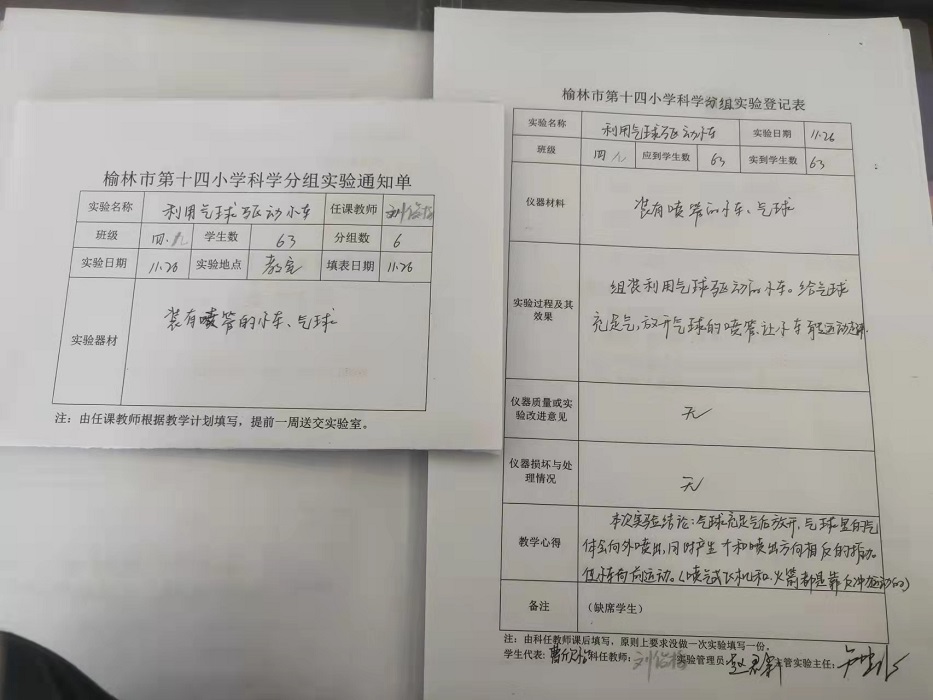 榆林市第十四小学科学分组实验通知单
实验名称 利用气球驱动小车 任课教师
班级 四.九 学生数 63 分组数 6
实验日期 11.26 实验地点 教室 填表日期 11.26
实验器材 装有喷管的小车、气球
注：由任课教师根据教学计划填写，提前一周送交实验室。
榆林市第十四小学科学分组实验登记表
实验名称 利用气球驱动小车 实验日期 11.26
班级 四九 应到学生数 63 实到学生数 63
仪器材料 装有喷管的小车、气球
实验过程及其
效果
组装利用气球驱动的小车。给气球
充足气,放开气球的喷管,让小车
仪器质量或实
验改进意见
无
仪器损坏与处
理情况
无
教学心得
本次实验结论:气球充足气后放开,气球里的气
体会向外喷出,同时产生个和喷出方向相反的推动。
使小车向前运动。(喷气式飞机和火箭都是靠反冲运动的)
备注 （缺席学生）
注：由科任教师课后填写，原则上要求没做一次实验填写一份。
学生代表: 科任教师: 实验管理员: 主管实验主任: